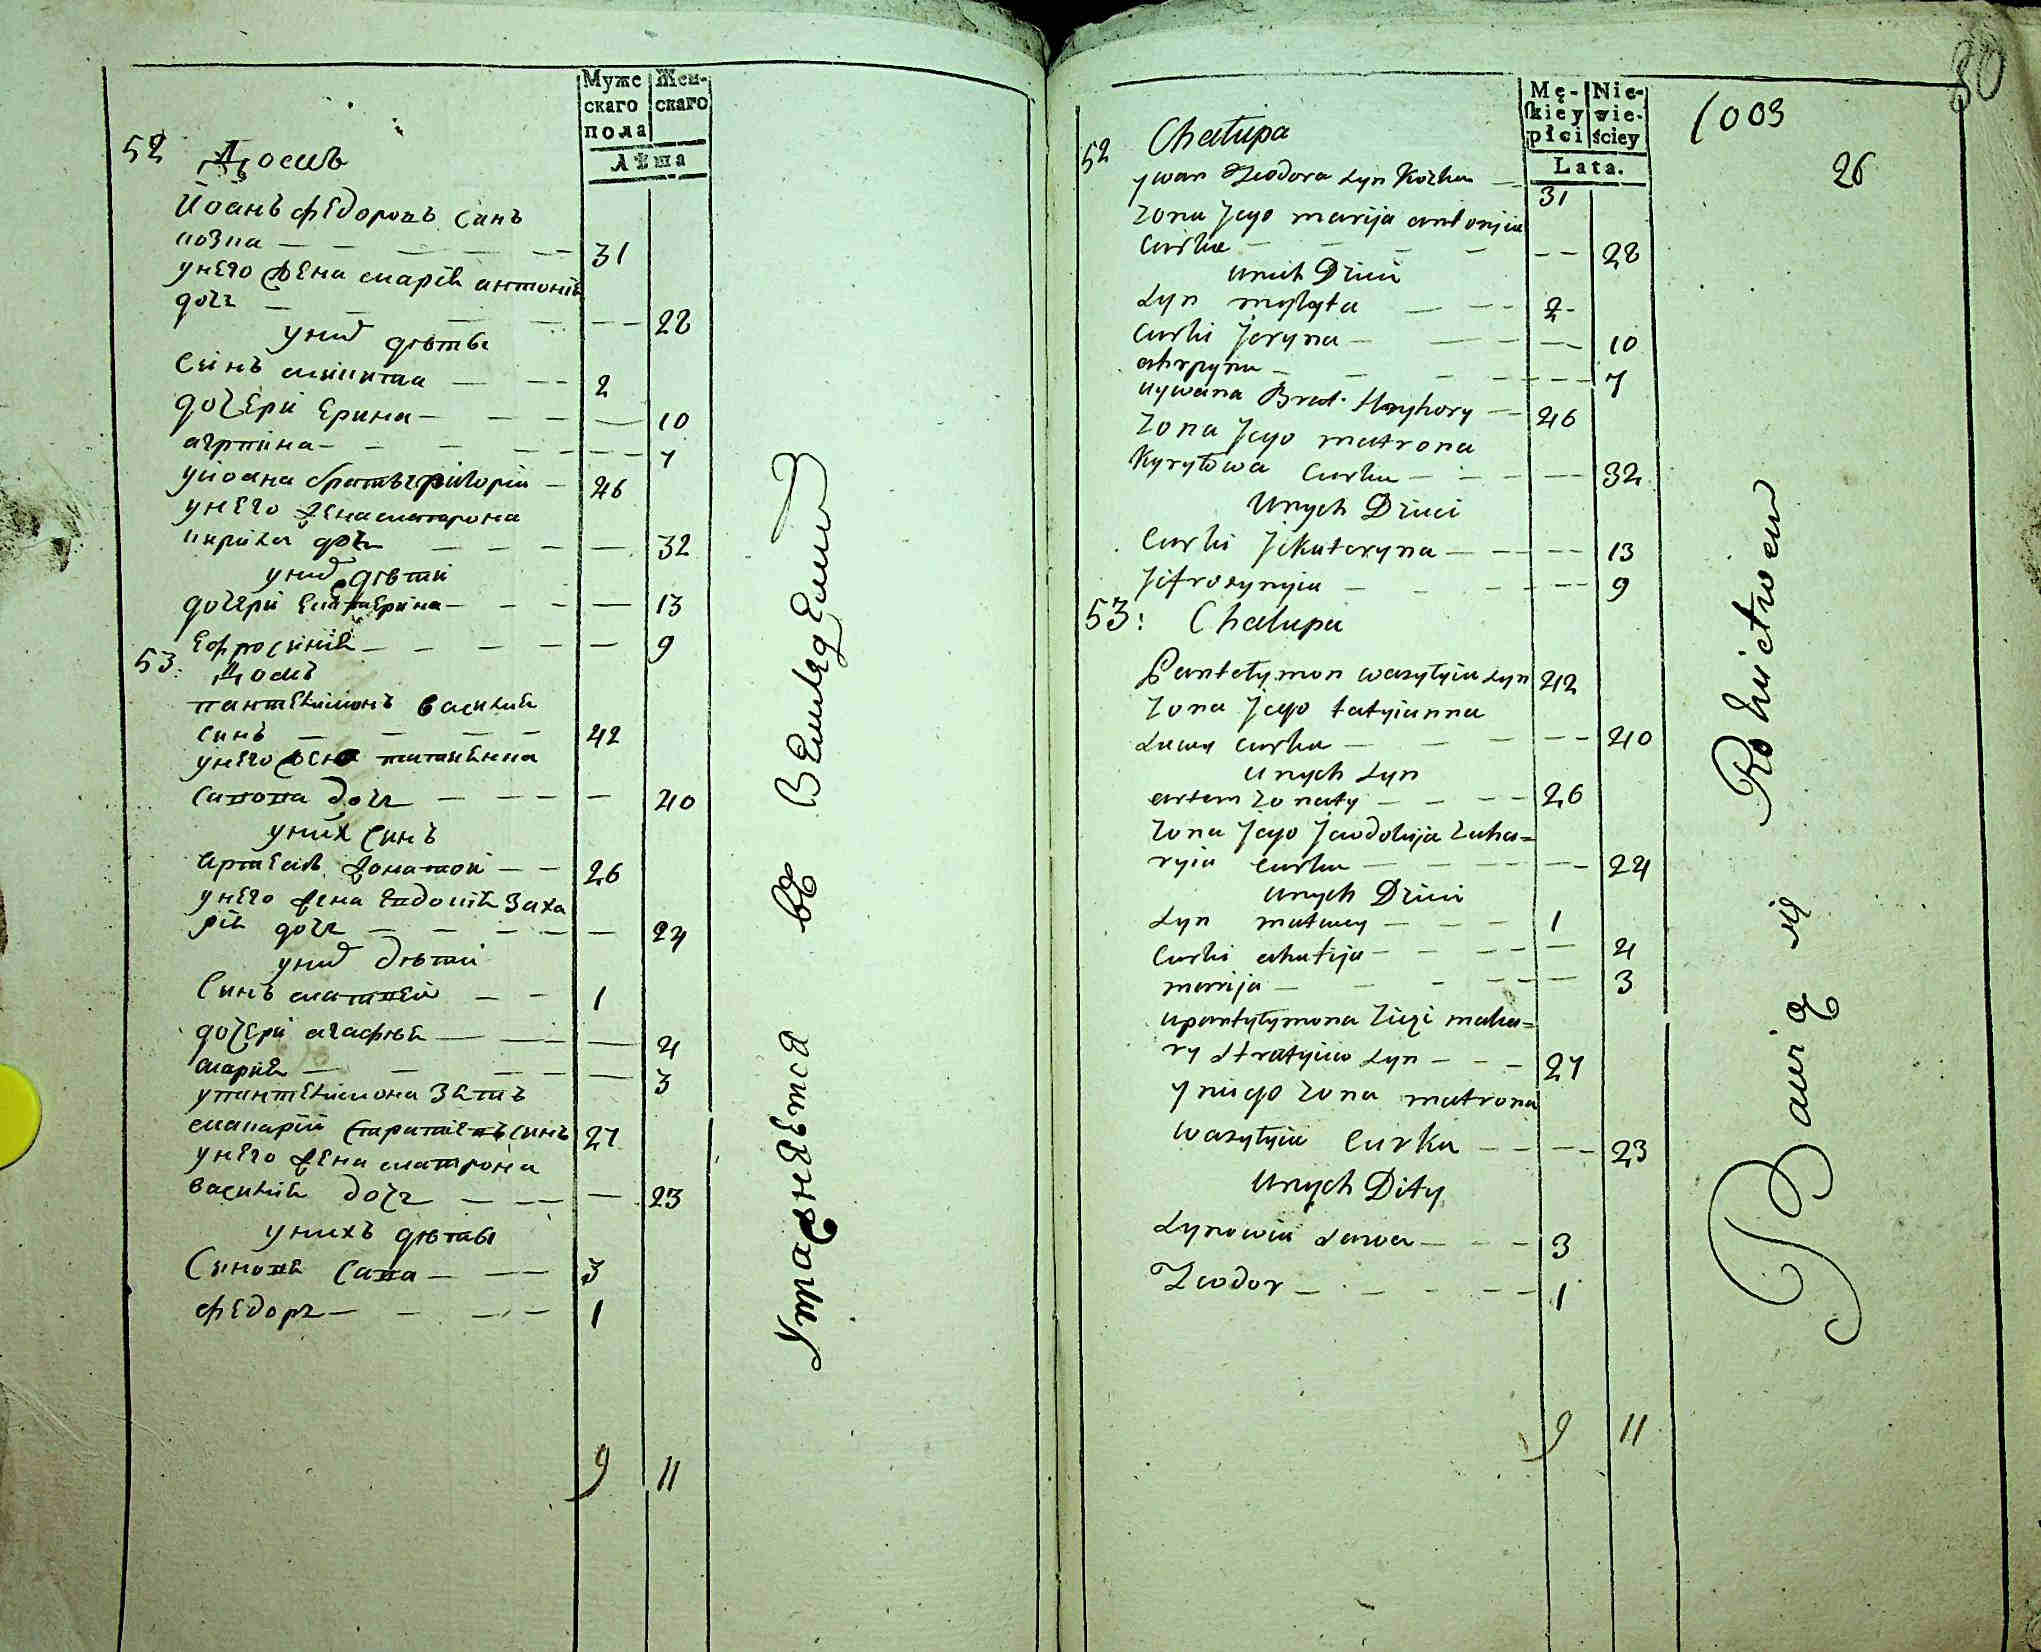 Муже Жен-
скаго скаго
пола
Лѣта
52 Домъ
Йоанъ Федоровъ синъ
козка — 31
унего жена марія антонія
дочь — 28
уних дѣти
синъ микита — 2
дочери Ерина — 10
агрпина — 7
уйоана братъ григорій — 46
унего жена матрона
кирила дочь — 32
уних дѣти
дочери екатерина — 13
ефросинія — 9
53: Домъ
пантелимонъ василія
синъ — 42
унего жена татиенна
савова дочь — 40
уних синъ
артемъ жонатой — 26
унего жена евдокія заха
рія дочь — 24
уних дѣти
Синъ матвей — 1
дочери агафія — 4
марія — 3
упантелимона зять
макарій стратіевъ синъ 27
унего жена матрона
василія дочь — 23
унихъ дѣти
Синовя сава — 3
федоръ — 1
9 11
Упражняѣтся въ Земледѣлии
80
Mę- Nie-
skiey wie-
płci ściey
Lata.
1003
26
52 Chałupa
ywan Teodora syn Kozka — 31
Zona Jego marija antonija
curka — 28
unich Dzieci
syn mykyta — 2
curki Jeryna — 10
ahrpyna — 7
uywana Brat Hryhory — 46
Zona Jego matrona
Kyryłowa curka — 32
Unych Dzieci
Curki Jekateryna — 13
Jefrosynyia — 9
53: Chałupa
Pantełymon wasylyia syn 42
Zona Jego tatyianna
sawy curka — 40
unych syn
artem zonaty — 26
Zona Jego Jewdokija zaha=
ryia curka — 24
unych Dzieci
syn matwey — 1
Curki ahafija — 4
marija — 3
upantyłymona zięć maka=
ry stratyiew syn — 27
y niego zona matrona
wasylyia curka — 23
Unych Dity
synowia sawa — 3
Teodor — 1
9 11
Bawią się Rolnictwem